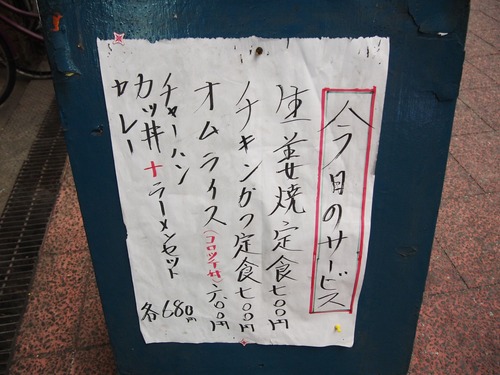 今日のサービス
生姜焼定食七00円
チキンカツ定食七00円
オムライス(コロッケ付)六00円
チャーハン
カツ丼+ラーメンセット 各680円
カレー